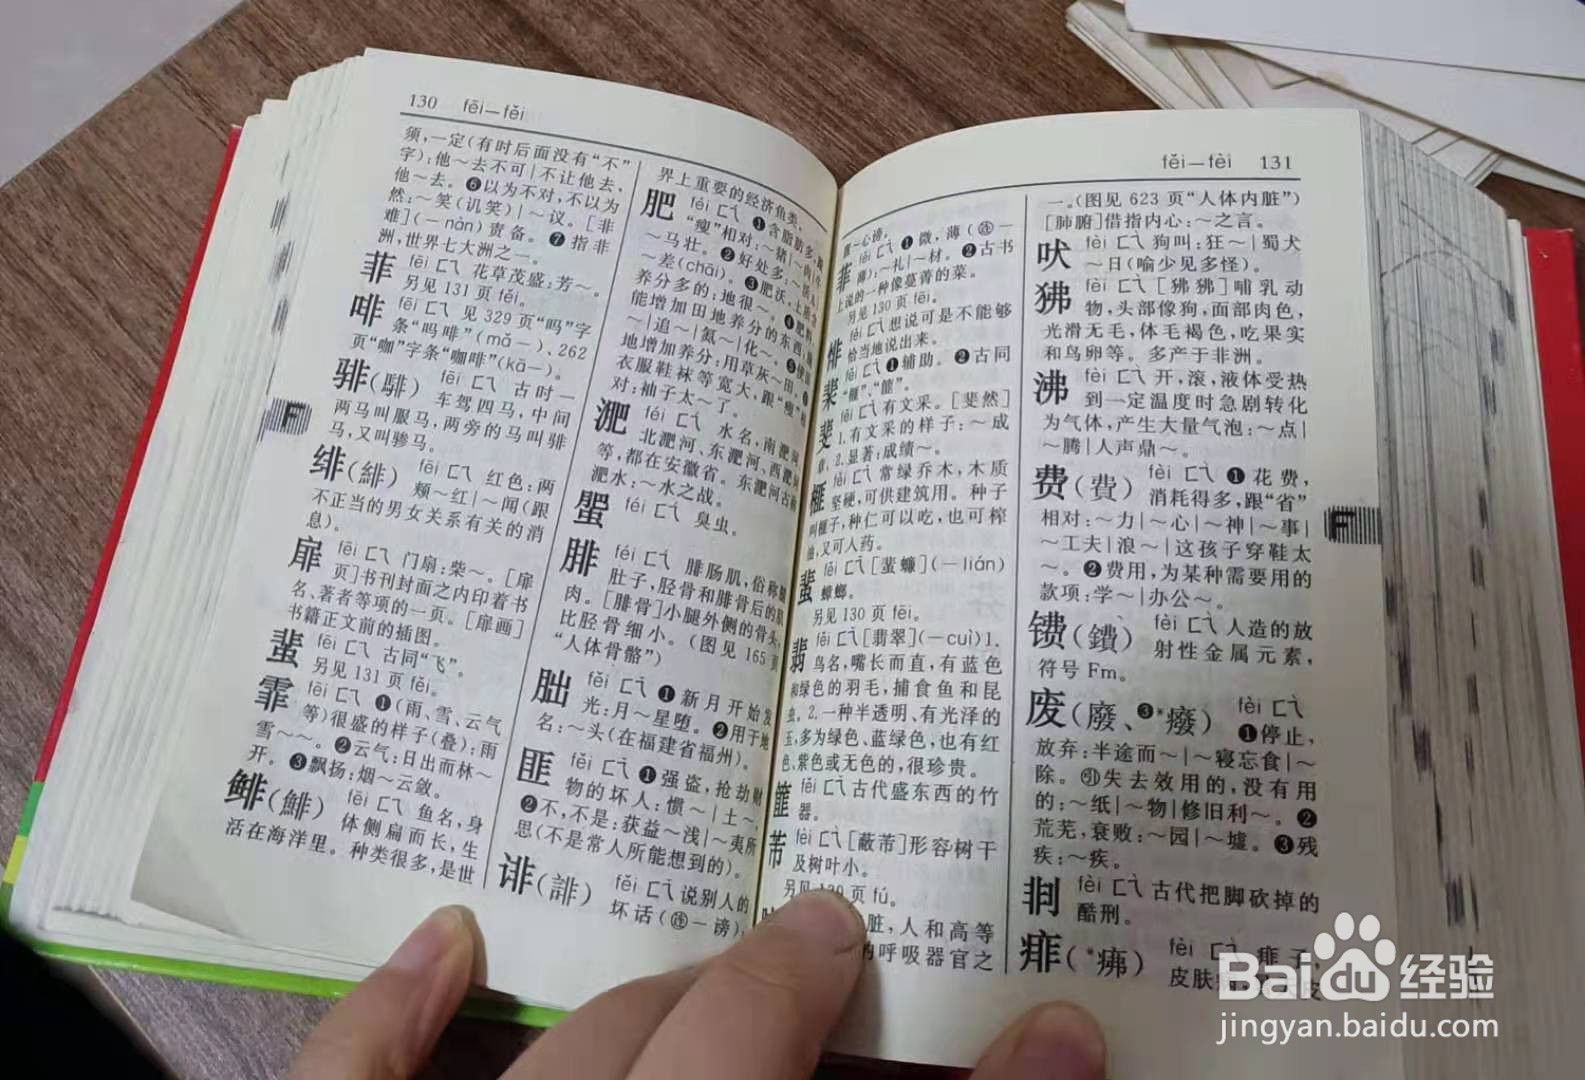 130 fēi—fěi
须,一定(有时后面没有“不”
字):他～去不可|不让他去,
他～去。❻以为不对,不以为
然:～笑(讥笑)|～议。[非
难](—nàn)责备。❼指非
洲,世界七大洲之一。
菲 fēi ㄈㄟ 花草茂盛:芳～。
另见131页fěi。
啡 fēi ㄈㄟ 见329页“吗”字
条“吗啡”(mǎ—)、262
页“咖”字条“咖啡”(kā—)。
骈(騑) fēi ㄈㄟ 古时一
车驾四马,中间
两马叫服马,两旁的马叫骓
马,又叫骖马。
绯(緋) fēi ㄈㄟ 红色:两
颊～红|～闻(跟
不正当的男女关系有关的消
息)。
扉 fēi ㄈㄟ 门扇:柴～。[扉
页]书刊封面之内印着书
名、著者等项的一页。[扉画]
书籍正文前的插图。
蜚 fēi ㄈㄟ 古同“飞”。
另见131页fěi。
霏 fēi ㄈㄟ ❶(雨、雪、云气
等)很盛的样子(叠):雨
雪～～。❷云气:日出而林～
开。❸飘扬:烟～云敛。
鲱(鯡) fēi ㄈㄟ 鱼名,身
体侧扁而长,生
活在海洋里。种类很多,是世
界上重要的经济鱼类。
肥 féi ㄈㄟˊ ❶含脂肪多,跟
“瘦”相对:～猪|～肉|牛
～马壮。❷好处多:～活儿|
～差(chāi)。❸肥沃,土质含
养分多的:地很～。❹肥料,
能增加田地养分的东西:施
～|追～|氮～|化～。❺使田
地增加养分:用草灰～田。❻
衣服鞋袜等宽大,跟“瘦”相
对:袖子太～了。
淝 féi ㄈㄟˊ 水名,南淝河、
北淝河、东淝河、西淝河
等,都在安徽省。东淝河古称
淝水:～水之战。
蜰 féi ㄈㄟˊ 臭虫。
腓 féi ㄈㄟˊ 腓肠肌,俗称腿
肚子,胫骨和腓骨后的肌
肉。[腓骨]小腿外侧的骨头,
比胫骨细小。(图见165页
“人体骨骼”)
朏 fěi ㄈㄟˇ ❶新月开始发
光:月～星堕。❷用于地
名:～头(在福建省福州)。
匪 fěi ㄈㄟˇ ❶强盗,抢劫财
物的坏人:惯～|土～。
❷不,不是:获益～浅|～夷所
思(不是常人所能想到的)。
诽(誹) fěi ㄈㄟˇ 说别人的
坏话(连—谤),
fěi—fèi 131
腹～心谤。
菲 fěi ㄈㄟˇ ❶微,薄(连—
薄):～礼|～材。❷古书
上说的一种像蔓菁的菜。
另见130页fēi。
悱 fěi ㄈㄟˇ 想说可是不能够
恰当地说出来。
棐 fěi ㄈㄟˇ ❶辅助。❷古同
“榧”,“篚”。
斐 fěi ㄈㄟˇ 有文采。[斐然]
1.有文采的样子:～成
章。2.显著:成绩～。
榧 fěi ㄈㄟˇ 常绿乔木,木质
坚硬,可供建筑用。种子
叫榧子,种仁可以吃,也可榨
油,又可入药。
蜚 fěi ㄈㄟˇ [蜚蠊](—lián)
蟑螂。
另见130页fēi。
翡 fěi ㄈㄟˇ [翡翠](—cuì)1.
鸟名,嘴长而直,有蓝色
和绿色的羽毛,捕食鱼和昆
虫。2.一种半透明、有光泽的
玉,多为绿色、蓝绿色,也有红
色、紫色或无色的,很珍贵。
篚 fěi ㄈㄟˇ 古代盛东西的竹
器。
芾 fèi ㄈㄟˋ [蔽芾]形容树干
及树叶小。
另见 页fú。
脏,人和高等
的呼吸器官之
一。(图见623页“人体内脏”)
[肺腑]借指内心:～之言。
吠 fèi ㄈㄟˋ 狗叫:狂～|蜀犬
～日(喻少见多怪)。
狒 fèi ㄈㄟˋ [狒狒]哺乳动
物,头部像狗,面部肉色,
光滑无毛,体毛褐色,吃果实
和鸟卵等。多产于非洲。
沸 fèi ㄈㄟˋ 开,滚,液体受热
到一定温度时急剧转化
为气体,产生大量气泡:～点|
～腾|人声鼎～。
费(費) fèi ㄈㄟˋ ❶花费,
消耗得多,跟“省”
相对:～力|～心|～神|～事|
～工夫|浪～|这孩子穿鞋太
～。❷费用,为某种需要用的
款项:学～|办公～。
镄(鐨) fèi ㄈㄟˋ 人造的放
射性金属元素,
符号Fm。
废(廢、❸*癈) fèi ㄈㄟˋ
❶停止,
放弃:半途而～|～寝忘食|～
除。㊀失去效用的,没有用
的:～纸|～物|修旧利～。❷
荒芜,衰败:～园|～墟。❸残
疾:～疾。
剕 fèi ㄈㄟˋ 古代把脚砍掉的
酷刑。
痱(*疿) fèi ㄈㄟˋ 痱子,
皮肤
F
F
Bai 经验
jingyan.baidu.com